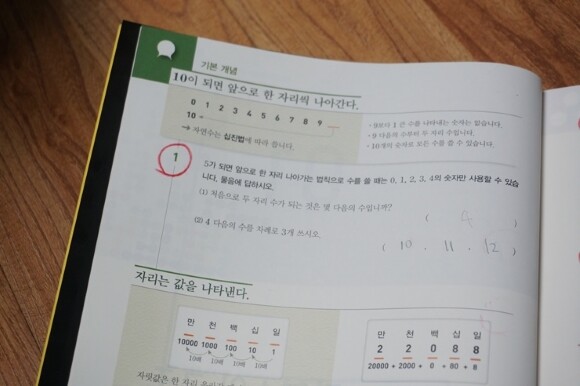 기본 개념
10이 되면 앞으로 한 자리씩 나아간다.
0 1 2 3 4 5 6 7 8 9
10
→ 자연수는 십진법에 따라 씁니다.
• 9보다 1 큰 수를 나타내는 숫자는 없습니다.
• 9 다음의 수부터 두 자리 수입니다.
• 10개의 숫자로 모든 수를 쓸 수 있습니다.
1
5가 되면 앞으로 한 자리 나아가는 법칙으로 수를 쓸 때는 0, 1, 2, 3, 4의 숫자만 사용할 수 있습
니다. 물음에 답하시오.
(1) 처음으로 두 자리 수가 되는 것은 몇 다음의 수입니까?
( 4
(2) 4 다음의 수를 차례로 3개 쓰시오.
( 10 , 11 , 12 )
자리는 값을 나타낸다.
만 천 백 십 일
10000 1000 100 10 1
10배 10배 10배 10배
만 천 백 십 일
2 2 0 8 8
20000 + 2000 + 0 + 80 + 8
자릿값은 한 자리